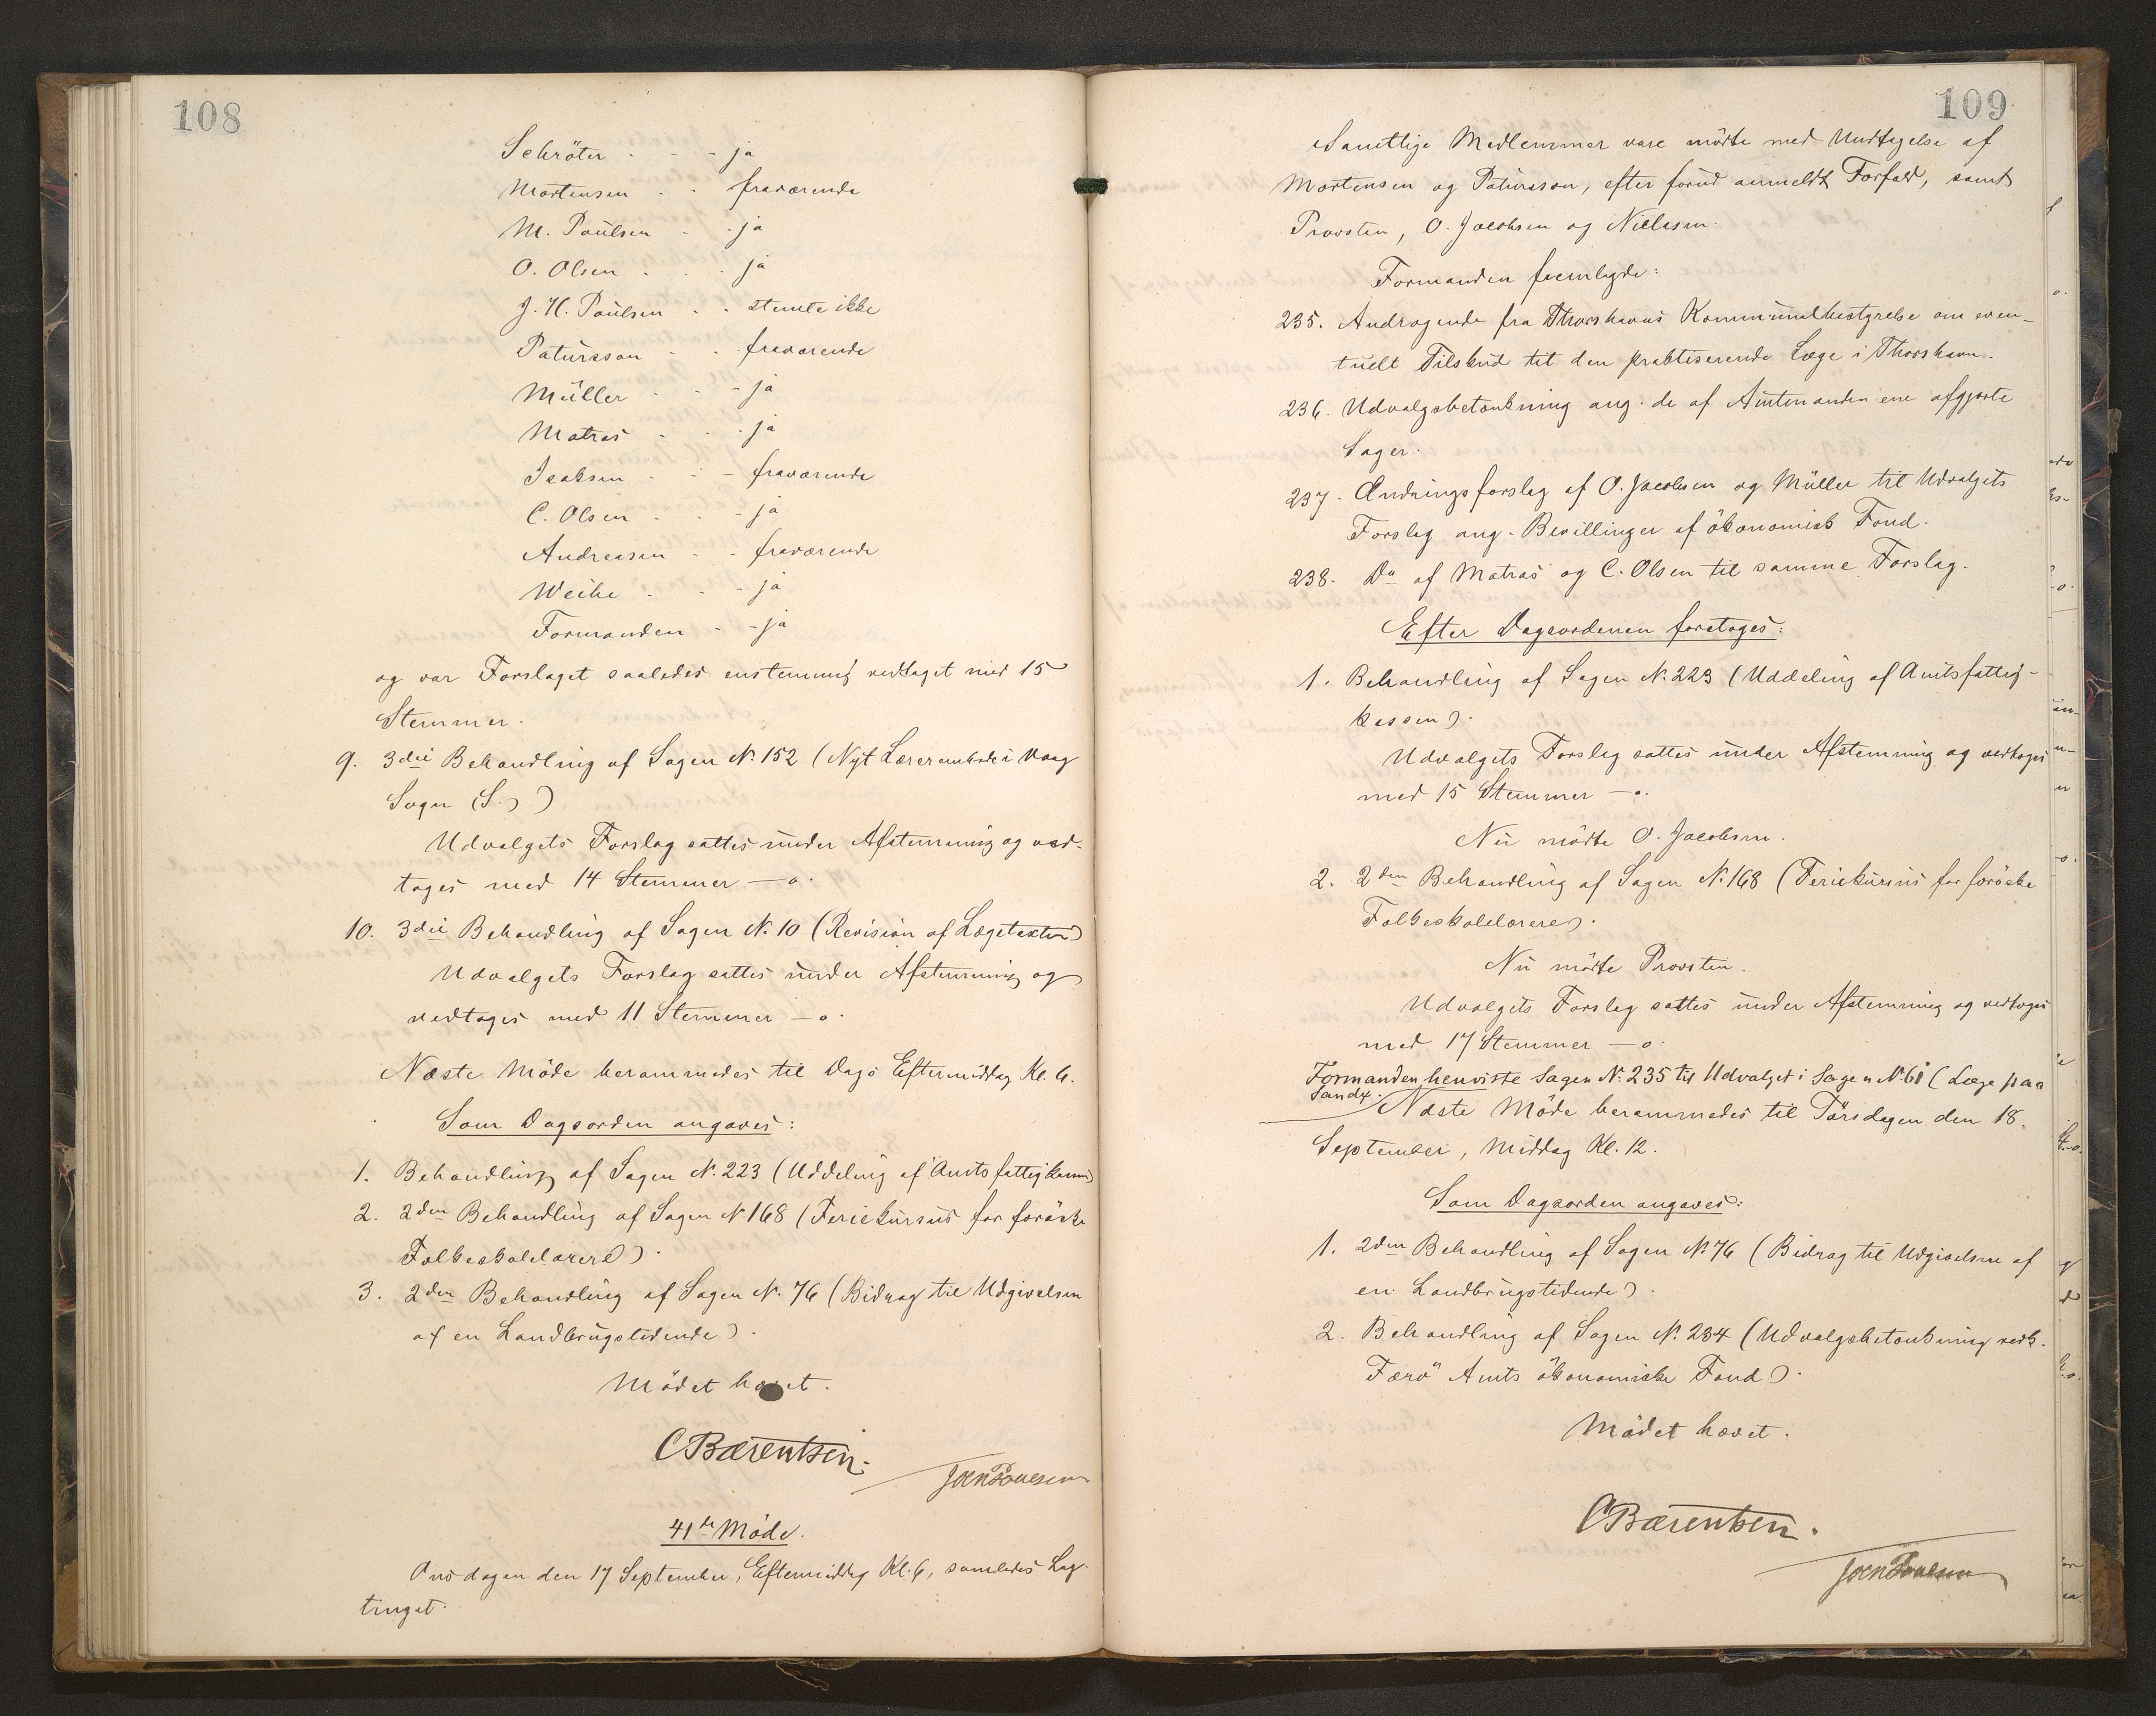 108
Schröter - - - ja
Mortensen - - fraværende
M. Poulsen - - ja
O. Olsen - - - ja
J. H. Poulsen - - stemte ikke
Patursson - - fraværende
Müller - - ja
Matras - - - ja
Isaksen - - - fraværende
C. Olsen - - - ja
Andreasen - - fraværende
Weihe - - - ja
Formanden - - ja
og var Forslaget saaledes enstemmig vedtaget med 15
Stemmer.
9. 3die Behandling af Sagen N. 152 (Nyt Lærerembede i Vaag
Sogn (S.))
Udvalgets Forslag sattes under Afstemning og ved-
toges med 14 Stemmer — o.
10. 3die Behandling af Sagen N. 10 (Revision af Lægetaxten)
Udvalgets Forslag sattes under Afstemning og
vedtoges med 11 Stemmer — o.
Næste Möde berammedes til Dags Eftermiddag Kl. 6.
Som Dagsorden angaves:
1. Behandling af Sagen N. 223 (Uddeling af Amtsfattigkassen)
2. 2den Behandling af Sagen N 168 (Feriekursus for færöske
Folkeskolelærere).
3. 2den Behandling af Sagen N. 76 (Bidrag til Udgivelsen
af en Landbrugstidende).
Mödet hævet.
CBærentsen.
Joen Poulsen
41de Möde.
Onsdagen den 17 September, Eftermiddag Kl. 6, samledes Lag-
tinget.
109
Samtlige Medlemmer vare mödte med Undtagelse af
Mortensen og Patursson, efter forud anmeldt Forfald, samt
Provsten, O. Jacobsen og Nielsen.
Formanden fremlagde:
235. Andragende fra Thorshavns Kommunalbestyrelse om even-
tuelt Tilskud til den praktiserende Læge i Thorshavn.
236. Udvalgsbetænkning ang. de af Amtmanden ene afgjorte
Sager.
237. Ændringsforslag af O. Jacobsen og Müller til Udvalgets
Forslag ang. Bevillinger af ökonomisk Fond.
238. Do af Matras og C. Olsen til samme Forslag.
Efter Dagsordenen foretoges:
1. Behandling af Sagen N. 223 (Uddeling af Amtsfattig-
kassen).
Udvalgets Forslag sattes under Afstemning og vedtoges
med 15 Stemmer — o.
Nu mödte O. Jacobsen.
2. 2den Behandling af Sagen N. 168 (Feriekursus for færöske
Folkeskolelærere).
Nu mödte Provsten.
Udvalgets Forslag sattes under Afstemning og vedtoges
med 17 Stemmer — o.
Formanden henviste Sagen N. 235 til Udvalget i Sagen N. 61 (Læge paa
Sandø.
Næste Möde berammedes til Torsdagen den 18.
September, Middag Kl. 12.
Som Dagsorden angaves:
1. 2den Behandling af Sagen N. 76 (Bidrag til Udgivelsen af
en Landbrugstidende).
2. Behandling af Sagen N. 234 (Udvalgsbetænkning vedk.
Færö Amts ökonomiske Fond).
Mödet hævet.
CBærentsen.
Joen Poulsen